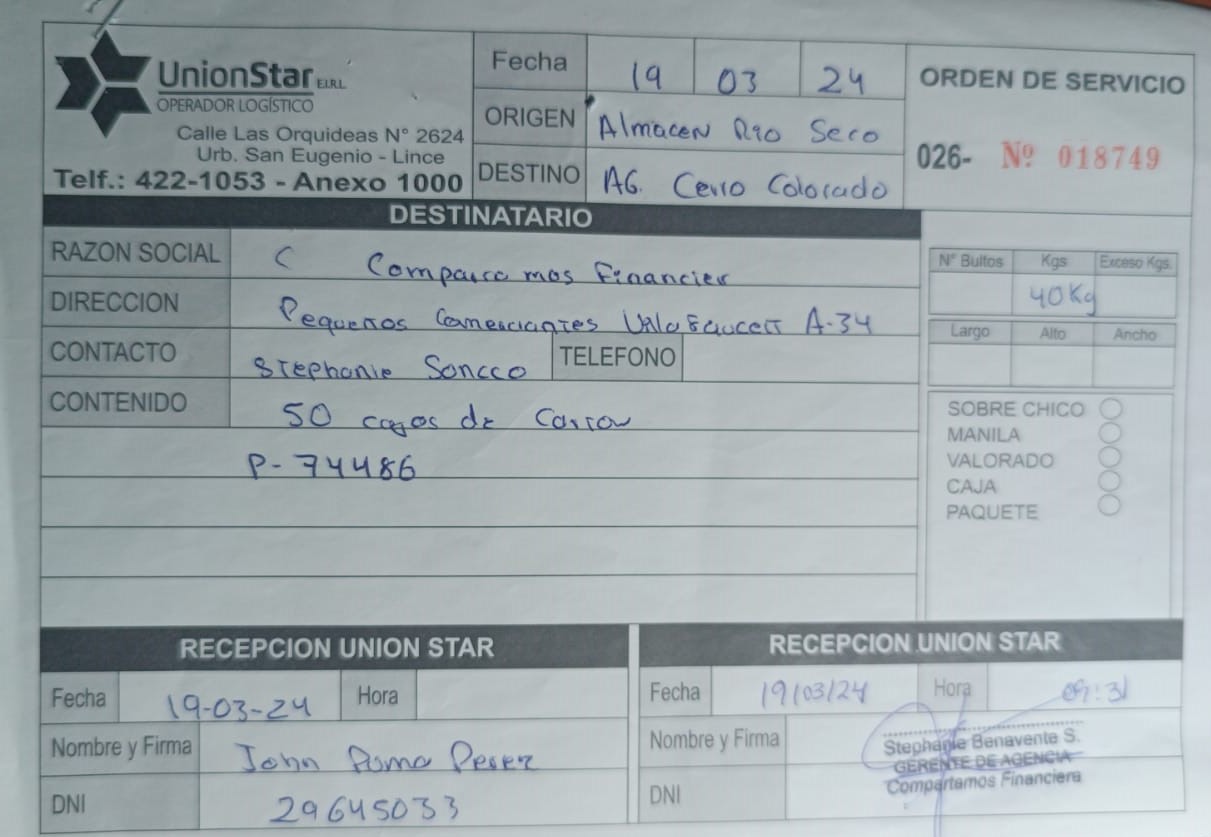 UnionStar E.I.R.L.
OPERADOR LOGÍSTICO
Calle Las Orquideas N° 2624
Urb. San Eugenio - Lince
Telf.: 422-1053 - Anexo 1000
Fecha 19 03 24
ORIGEN Almacen Rio Seco
DESTINO AG. Cerro Colorado
ORDEN DE SERVICIO
026- Nº 018749
DESTINATARIO
RAZON SOCIAL C Comparto mos Financier
DIRECCION Pequeños Comerciantes Villa Faucett A-34
CONTACTO Stephanie Soncco TELEFONO
CONTENIDO 50 cajas de Carton
P-74486
N° Bultos Kgs Exceso Kgs.
40Kg
Largo Alto Ancho
SOBRE CHICO
MANILA
VALORADO
CAJA
PAQUETE
RECEPCION UNION STAR
Fecha 19-03-24 Hora
Nombre y Firma John Puma Perez
DNI 29645033
RECEPCION UNION STAR
Fecha 19/03/24 Hora 09:31
Nombre y Firma
Stephanie Benavente S.
GERENTE DE AGENCIA
Compartamos Financiera
DNI